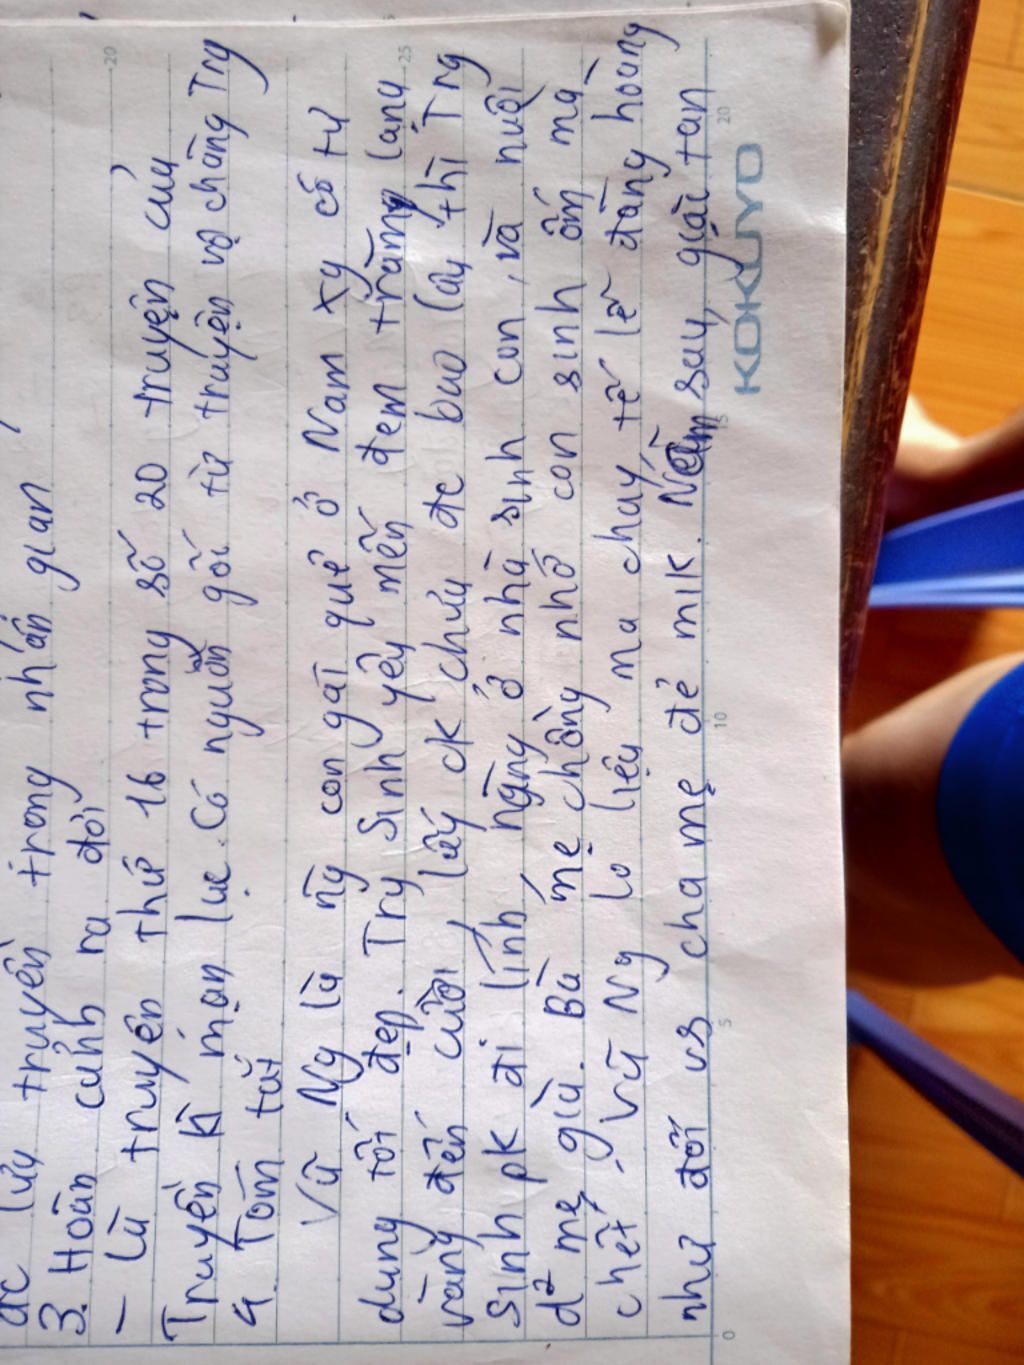 đc lưu truyền trong nhân gian
3. Hoàn cảnh ra đời
- Là truyện thứ 16 trong số 20 truyện của
Truyền kì mạn lục. Có nguồn gốc từ truyện vợ chàng Trg
4. Tóm tắt
Vũ Ng là ng con gái quê ở Nam Xg có tư
dung tốt đẹp. Trg Sinh yêu mến đem trăm lạng
vàng đến cưới, lấy ck chưa đc bao lâu thì Trg
Sinh pk đi lính, nàng ở nhà sinh con, và nuôi
d² mẹ già. Bà mẹ chồng nhớ con sinh ốm mà
chết, Vũ Ng lo liệu ma chay, tế lễ đàng hoàng
như đối vs cha mẹ đẻ mik. Năm sau, giặc tan
KOKUYO
0 5 10 15 20
20
25